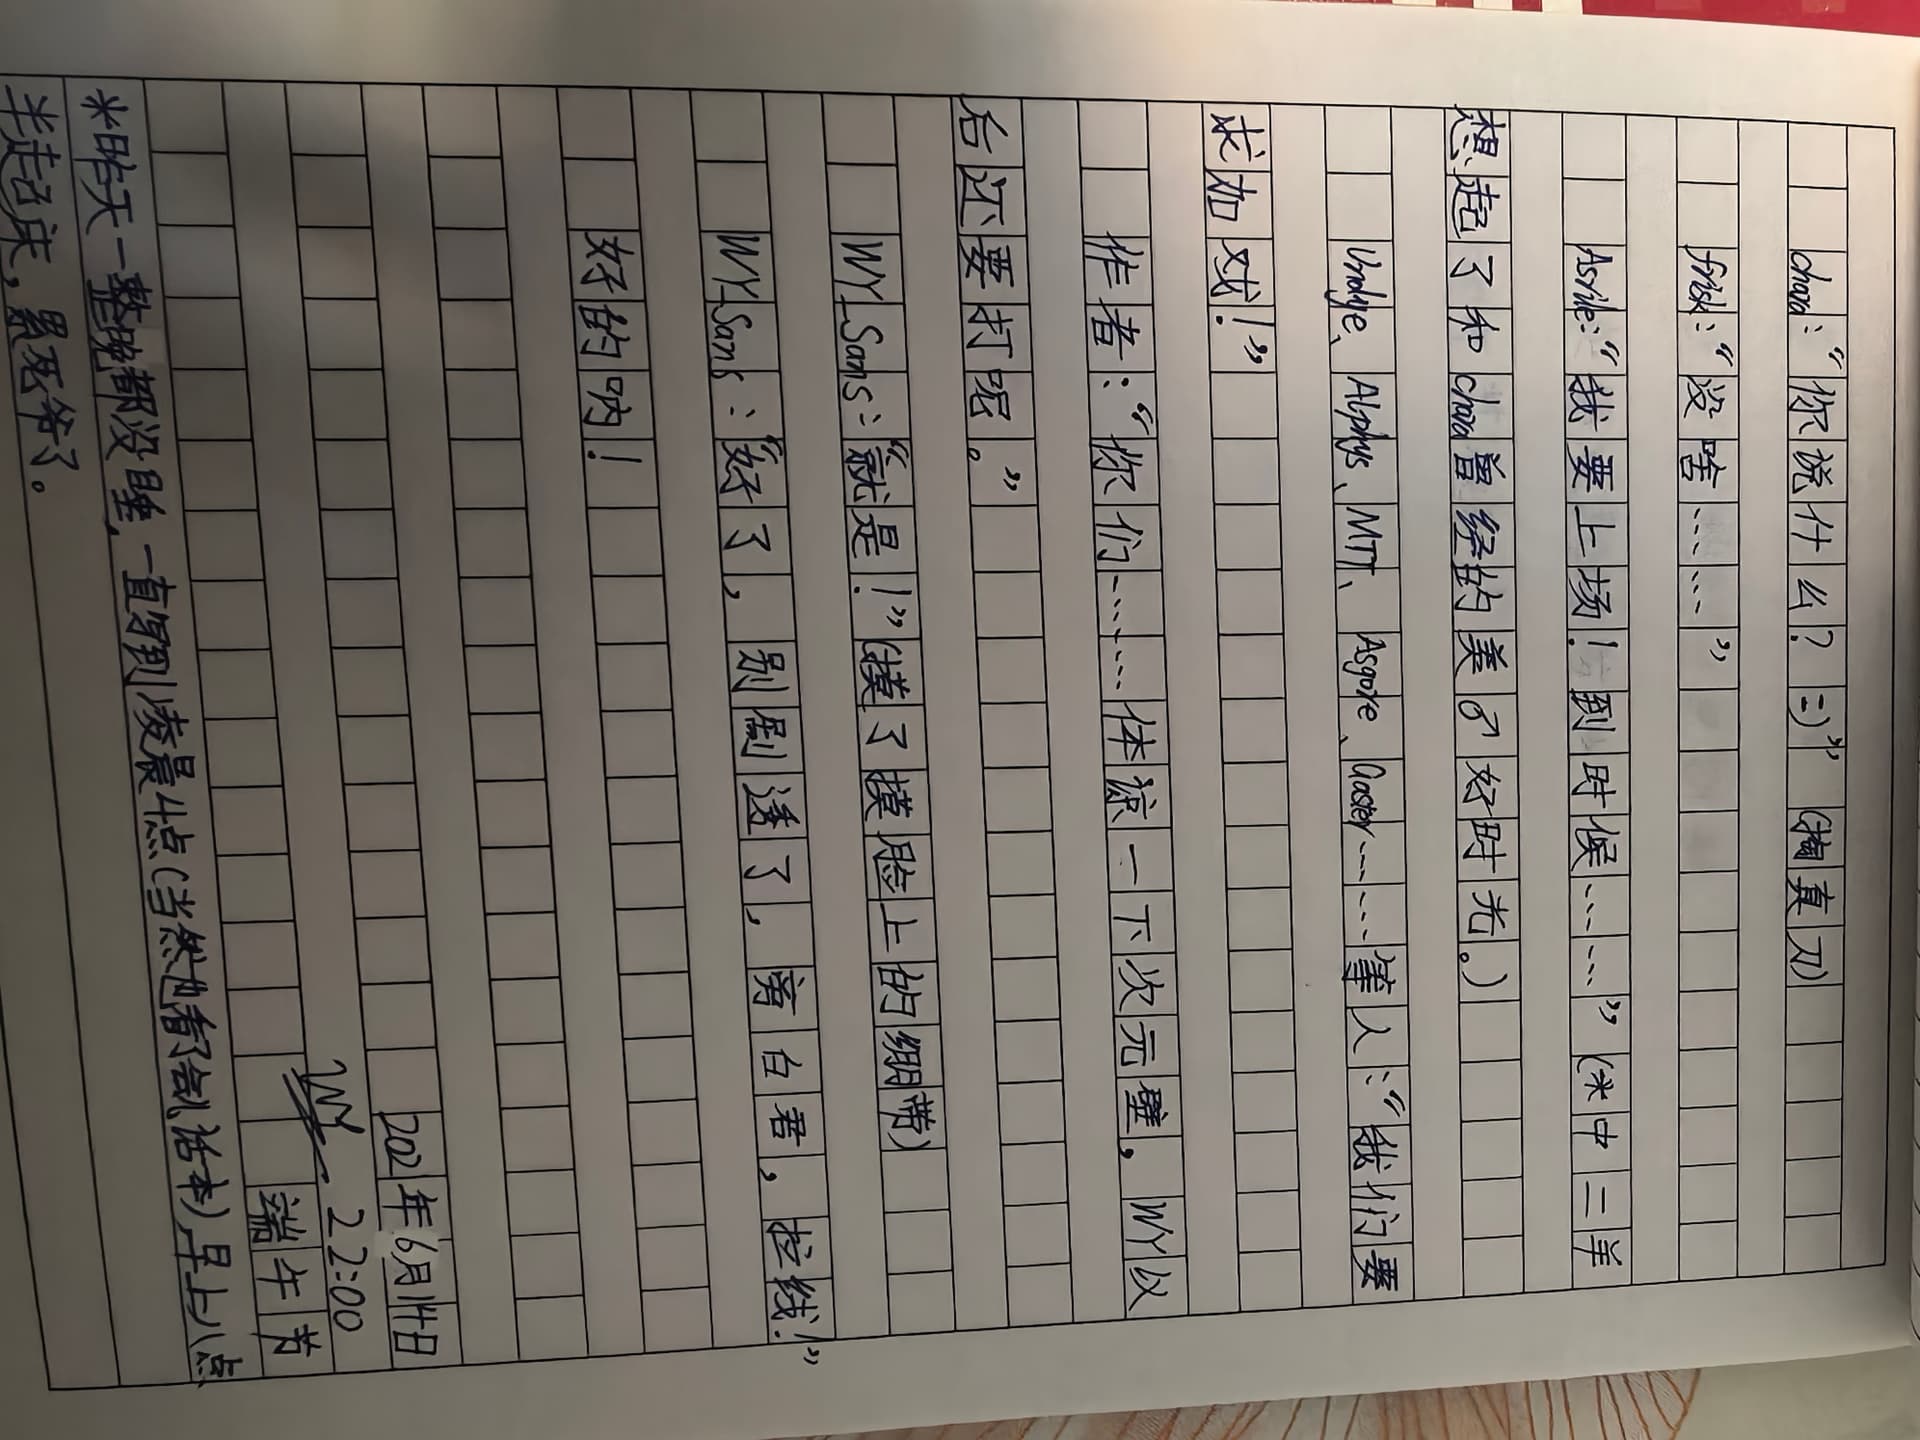 chara：“你说什么？=)”（掏真刀）
frisk：“没啥……”
Asriel：“我要上场！到时候……”（※中二羊
想起了和chara曾经的美♂好时光。）
Undyne、Alphys、MTT、Asgore、Gaster……等人：“我们要
求加戏！”
作者：“你们……体谅一下次元壁，WY以
后还要打呢。”
WY_Sans：“就是！”（摸了摸脸上的绷带）
WY_Sans：“好了，别剧透了，旁白君，拉线！”
好的呐！
2021年6月14日
WY. 22:00
端午节
*昨天一整晚都没睡，一直写到凌晨4点（当然也看了会儿话本）早上八点
半走起床，累死爷了。